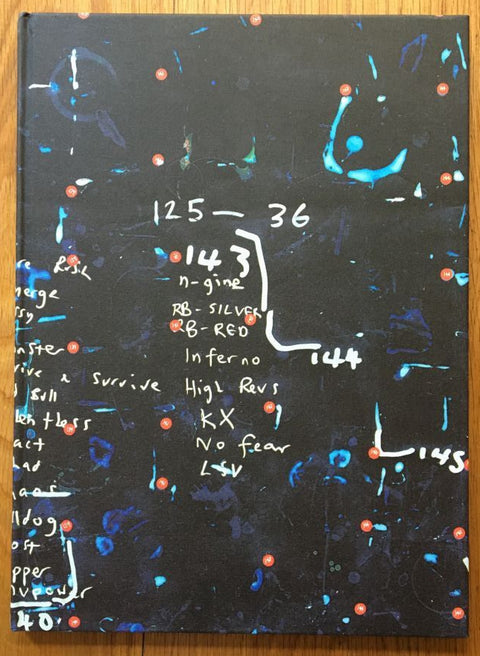 125 - 36
143
n-gine
RB-SILVER
RB-RED
Inferno
High Revs
KX
No fear
LSV
144
145
erge
nster
ive & Survive
Bull
lentless
act
had
haos
lldog
ost
pper
vpower
40